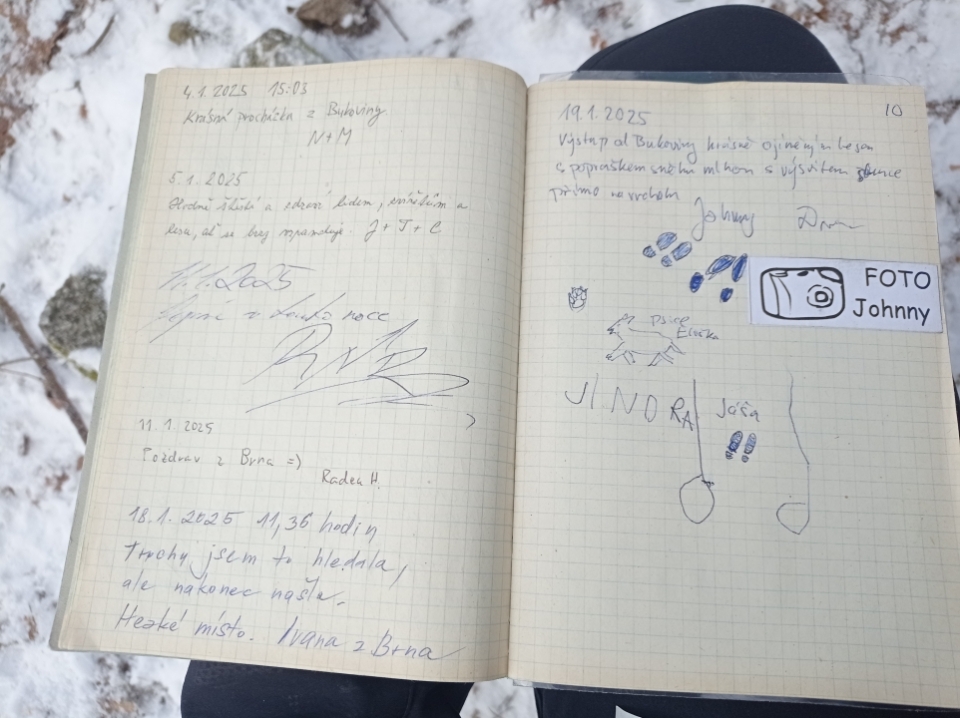 4.1.2025 15:03
Krásná procházka z Bukoviny
N+M
5.1.2025
Hodně štěstí a zdraví lidem, zvířátkům a
lesu, ať se brzy vzpamatuje. J + T + C
11.1.2025
11.1.2025
Pozdrav z Brna =)
Radek H.
18.1.2025 11,36 hodin
Trochu jsem to hledala,
ale nakonec našla.
Hezké místo. Ivana z Brna
10
19.1.2025
Výstup od Bukoviny krásně ojíněným lesem
s popraškem sněhu mlhou s výsvitem slunce
přímo na vrcholu
Johnny
FOTO
Johnny
psice
Eliška
JINDRA
Jáša